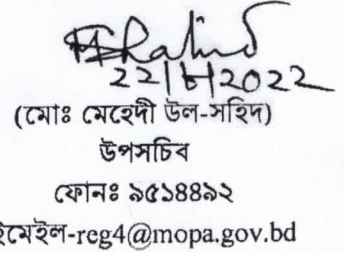 22|6|2022
(মোঃ মেহেদী উল-সহিদ)
উপসচিব
ফোনঃ ৯৫১৪৪৯২
ইমেইল-reg4@mopa.gov.bd